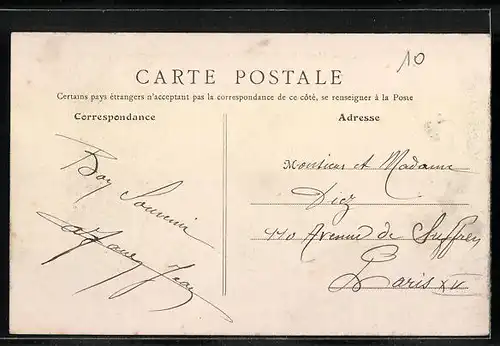 10
CARTE POSTALE
Certains pays étrangers n'acceptant pas la correspondance de ce côté, se renseigner à la Poste
Correspondance
Bon Souvenir
Adresse
Monsieur et Madame
Diez
170 Avenue de Suffren
Paris XV